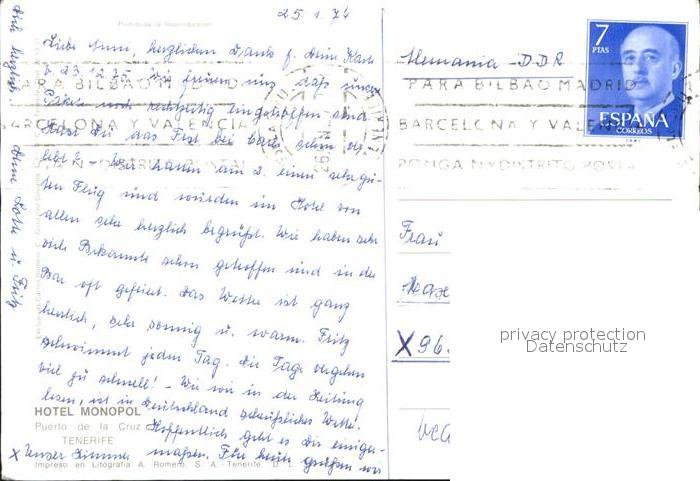 25.1.74
Prohibida la Reproducción
Liebe Anni, herzlichen Dank f. Deine Karte
v. 23.12. Wir freuen uns, daß unser
Päckchen noch rechtzeitig eingetroffen sind.
Hast Du das Fest bei Carla schön ver-
lebt? - Wir hatten am 2. einen sehr gu-
ten Flug und wurden im Hotel von
allen sehr herzlich begrüßt. Wir haben sehr
viele Bekannte schon getroffen und in der
Bar oft gefeiert. Das Wetter ist ganz
herrlich, sehr sonnig u. warm. Fritz
schwimmt jeden Tag. Die Tage vergehen
viel zu schnell! - Wie wir in der Zeitung
lesen, ist in Deutschland scheußliches Wetter.
Hoffentlich geht es Dir einiger-
maßen. Für heute grüßen wir
Dich herzlichst Deine Lotte u. Fritz
X Unser Zimmer
HOTEL MONOPOL
Puerto de la Cruz
TENERIFE
Impreso en Litografía A. Romero, S. A. - Tenerife. D. L.
Alemania - DDR
7
PTAS
ESPAÑA
CORREOS
PARA BILBAO MADRID
BARCELONA Y VALENCIA
PONGA Nº DISTRITO POSTAL
Frau
X 96
privacy protection
Datenschutz